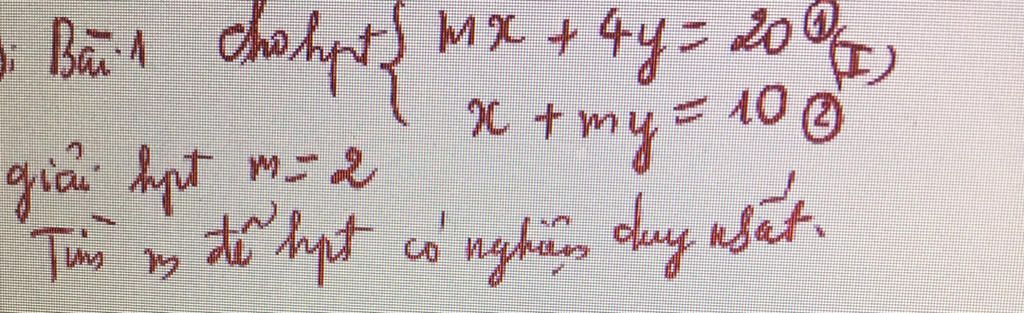 Bài 1 cho hpt { mx + 4y = 20 ① (I)
x + my = 10 ②
giải hpt m = 2
Tìm m để hpt có nghiệm duy nhất.